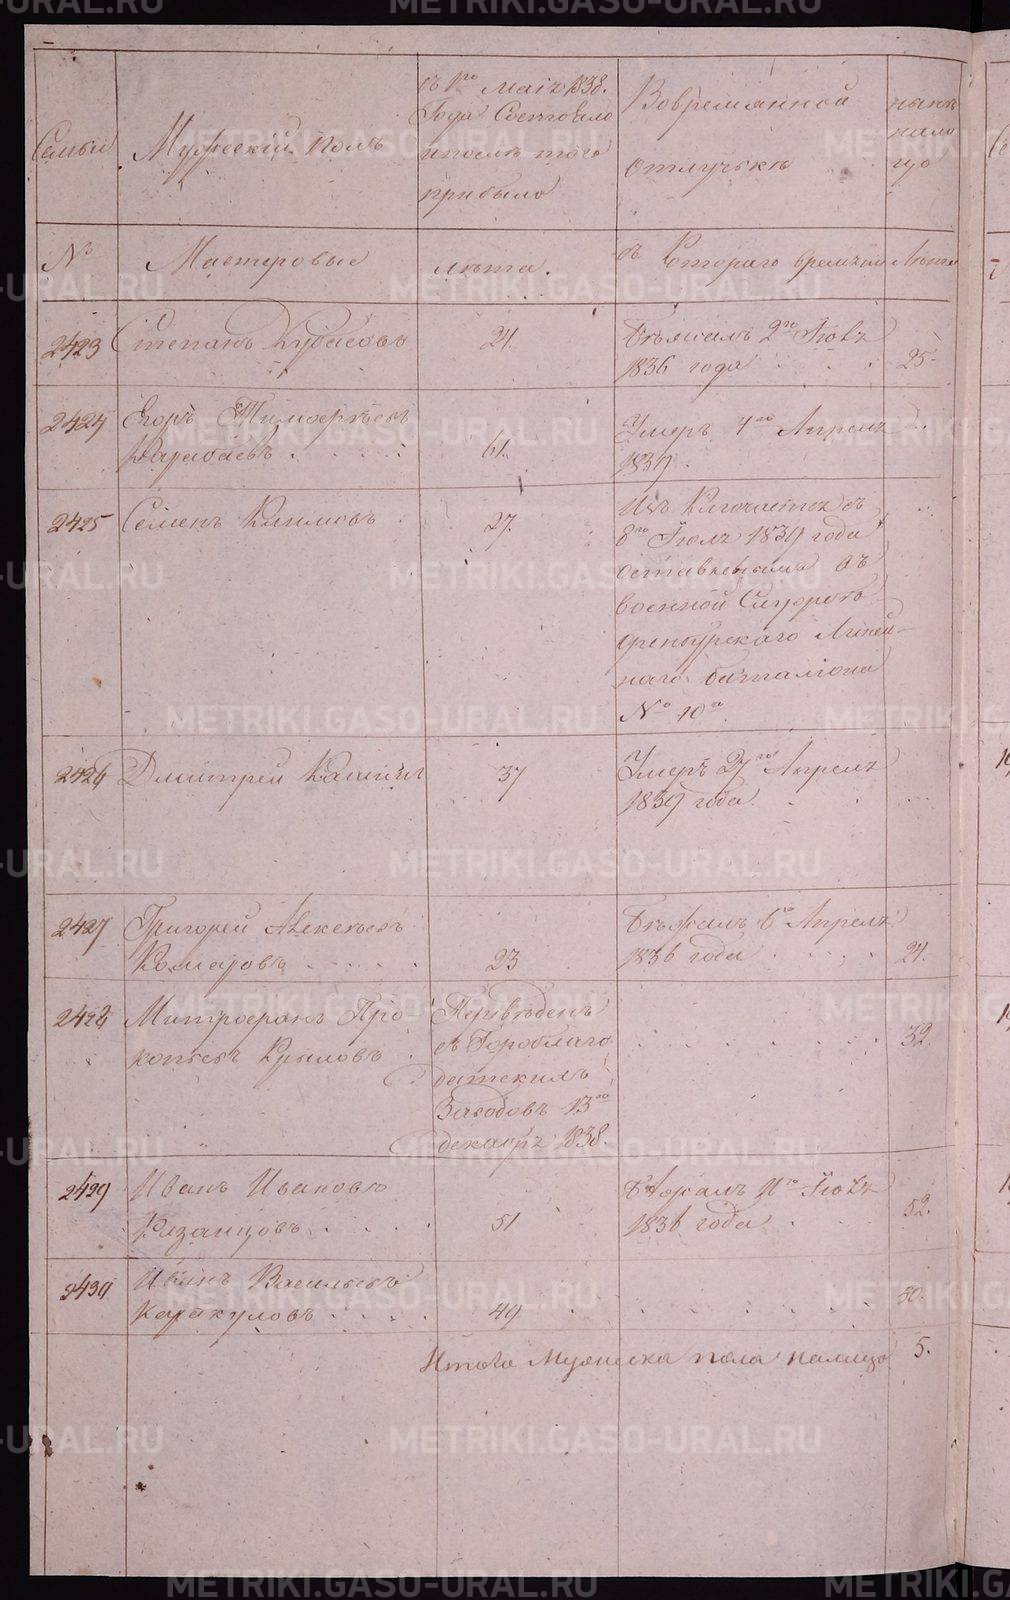 Семьи
Мужескій полъ
съ 1го Маія 1838.
Года Состояло
и послѣ того
прибыло
Вовремянной
отлучькѣ
нынѣ
нали
цо
№
Мастеровые
лѣта.
съ Котораго времени
Лѣта
2423
Степанъ Кубасовъ
24.
Бѣжалъ 2го Іюля
1836 года
25.
2424
Егоръ Тимофѣевъ
Карабаевъ
61.
Умеръ 7го Апреля
1839.
2425
Семенъ Климовъ
27.
8го Іюля 1839 года
оставленъ въ
военной
Оренбурскаго Линей-
наго баталіона
№ 10го
2426
Дмитрей
37
Умеръ 27го Апреля
1839 года
2427
Григорей Алексѣевъ
Комаровъ
23
Бѣжалъ 6го Апреля
1836 года
24.
2428
Митрофанъ Про
копьевъ Крыловъ
Перевѣденъ
съ Гороблаго
датскихъ
Заводовъ 13го
декабря 1838.
32.
2429
Иванъ Ивановъ
Казанцовъ
51
Бѣжалъ 11го Іюля
1836 года
52.
2430
Иванъ Васильевъ
Каракуловъ
49
50.
Итого Мужеска пола налицо 5.
METRIKI.GASO-URAL.RU